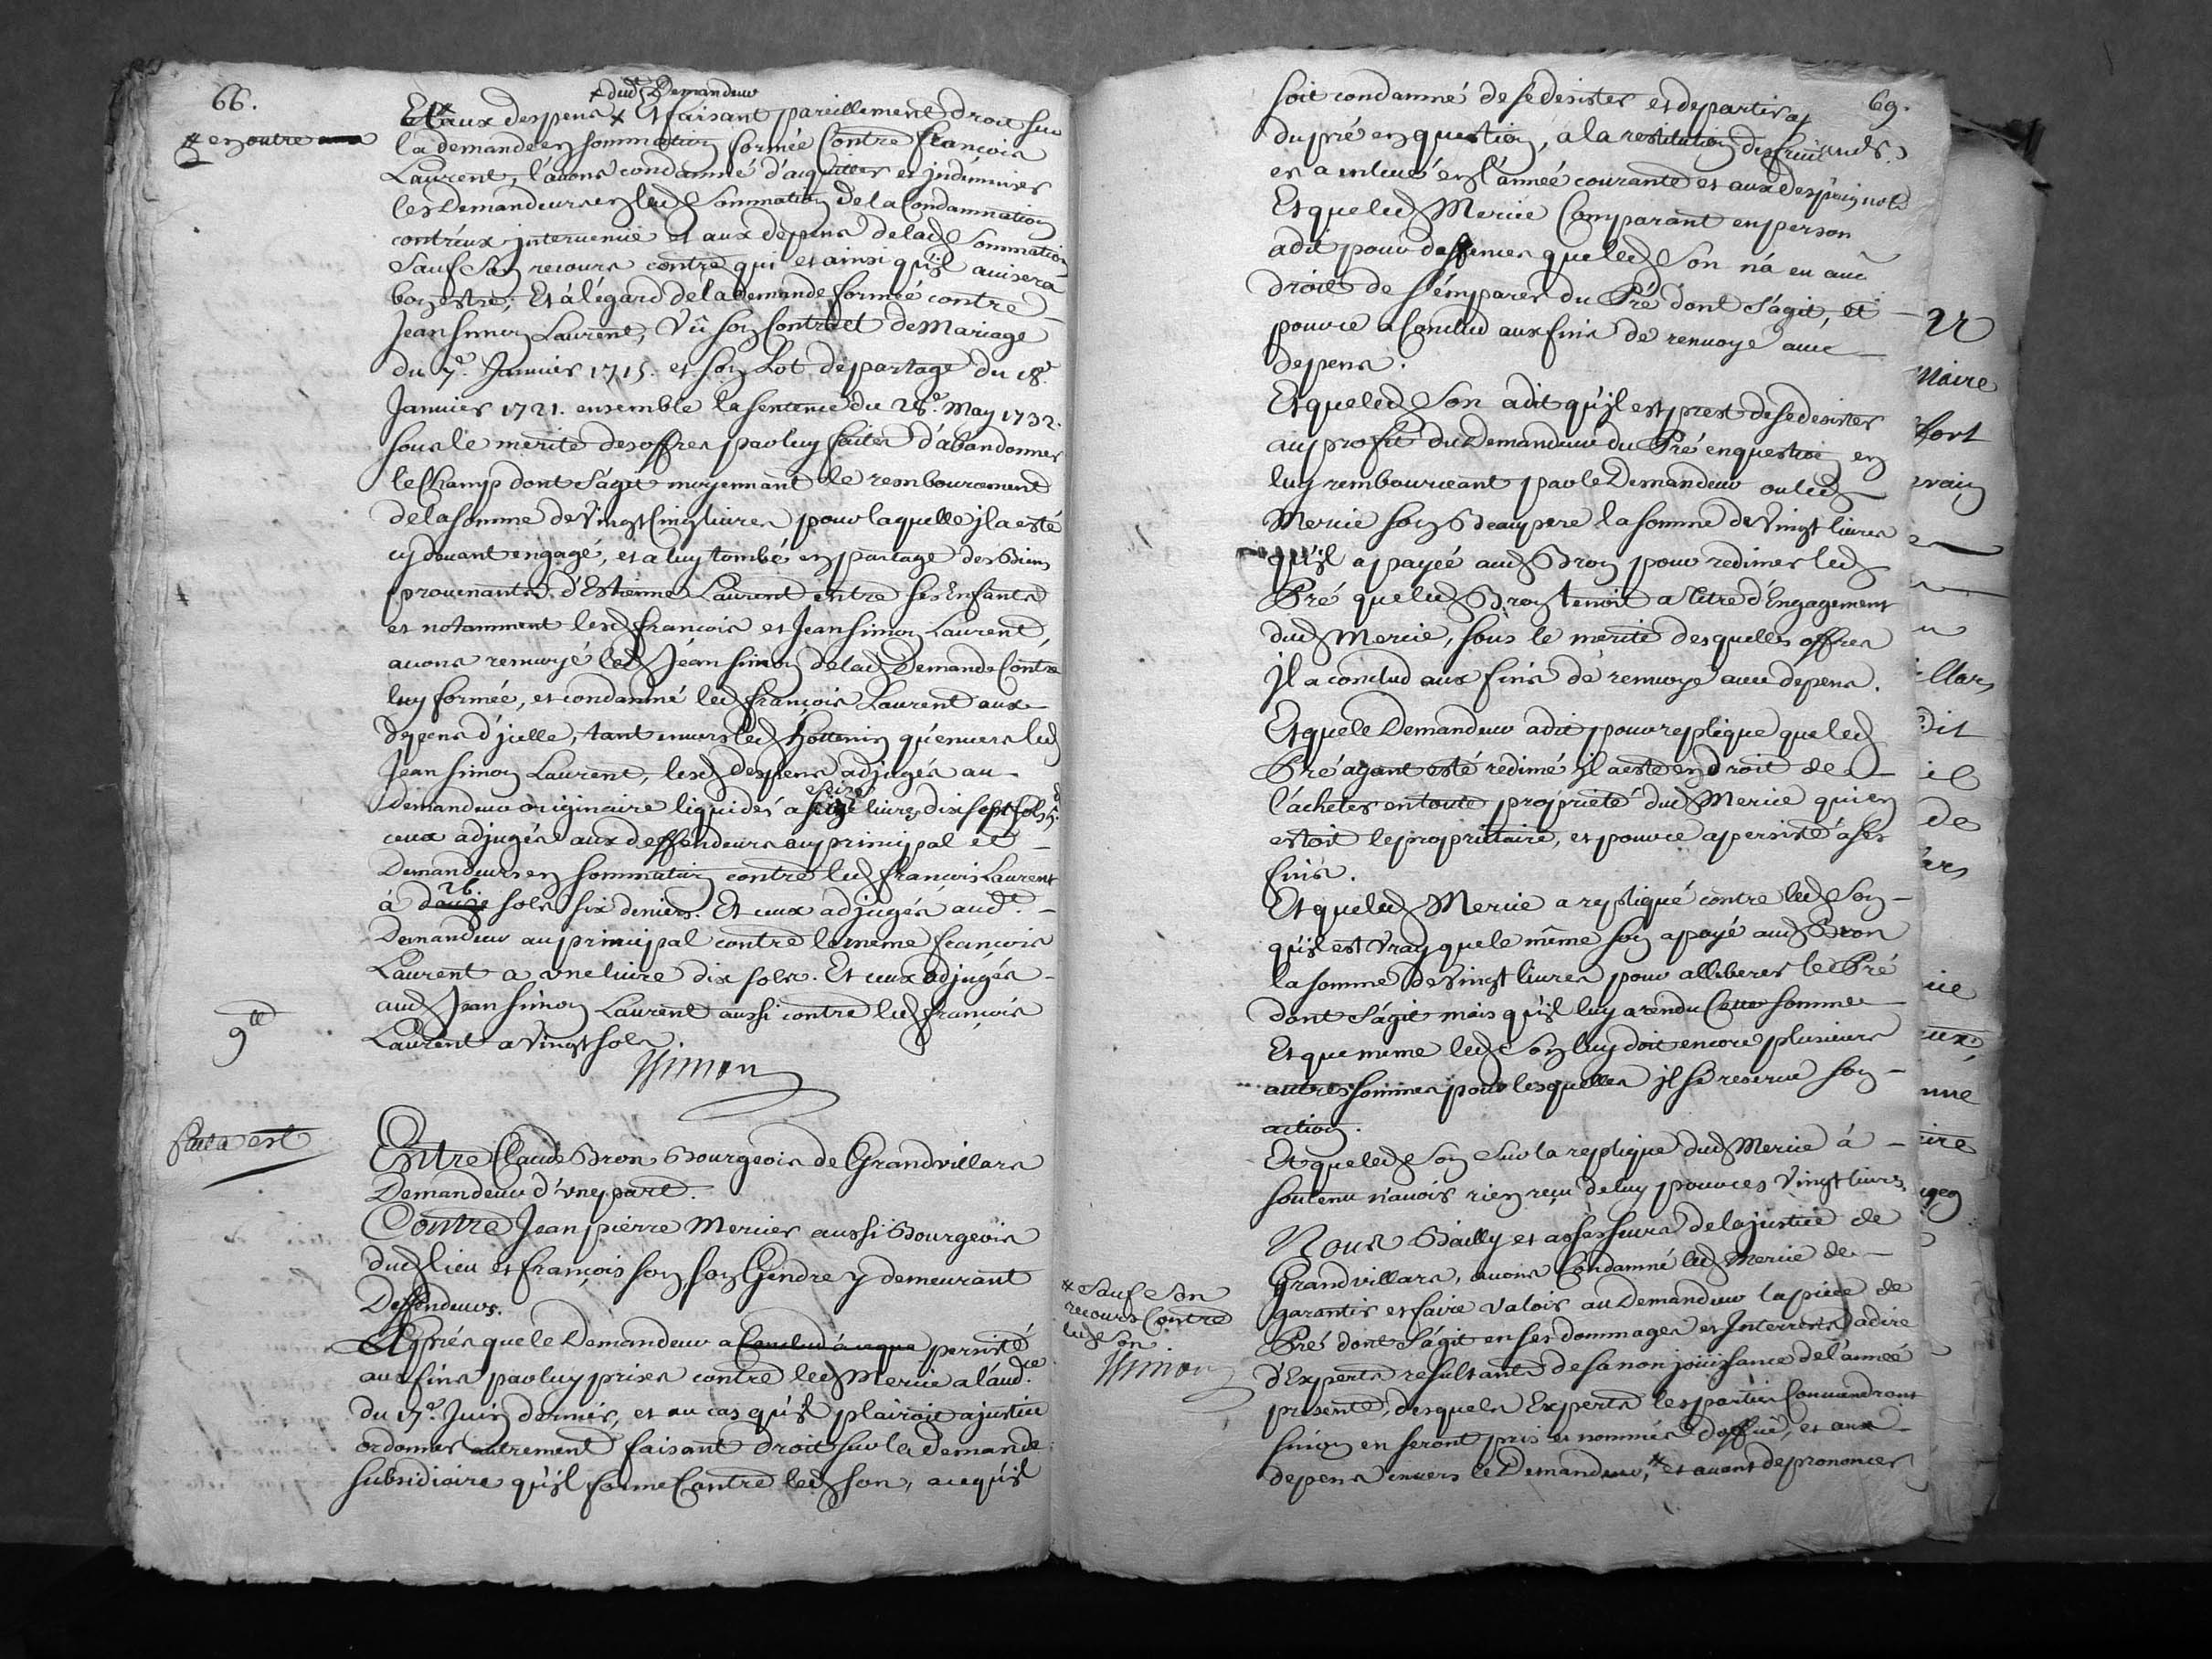 66.
# en outre
+ dud Demandeur
Et # aux despens + Et faisant pareillement droit sur
la demande en sommation formée Contre françois
Laurent, l'avons condamné d'acquitter et jndemniser
les Demandeurs en lad Sommation de la Condamnation
contr'eux jntervenüe et aux depens de lad Sommation
Sauf son recours contre qui et ainsi qu'jl avisera
bon estre, Et à l'égard de la demande formée contre
Jean simon Laurent, Vû son Contract de Mariage
du 7e. Janvier 1715. et son Lot de partage du 18e.
Janvier 1721. ensemble la sentence du 28e. May 1732.
sous le merite des offres par luy faites d'abandonner
le Champ dont s'agit moyennant le remboursement
de la somme de Vingt Cinq livres pour laquelle jl a esté
cy devant engagé, et a luy tombé en partage des Biens
provenants d'Estienne Laurent entre ses Enfants
et notamment lesd françois et Jean simon Laurent,
avons renvoyé led Jean simon de lad Demande Contre
luy formée, et condamné led françois Laurent aux
depens d'jcelle, tant envers led hottenin qu'envers led
Jean Simon Laurent, lesd despens adjugés au
Demandeur originaire liquidés a seize livres dix sept sols 5 d
ceux adjugés aux deffendeurs au principal et
Demandeurs en sommation contre led françois Laurent
à 26. sols six deniers. Et ceux adjugés aud.
Demandeur au principal contre le meme françois
Laurent a une livre dix sols. Et ceux adjugés
aud Jean simon Laurent aussi contre led françois
Laurent a Vingt sols.
9 lt
JSimon
facta est
Entre Claude Bron Bourgeois de Grandvillars
Demandeur d'une part.
Contre Jean pierre Mercier aussi Bourgeois
dud lieu et françois son, son Gendre y demeurant
Deffendeurs.
Après que le Demandeur a Conclud à ce que persisté
aux fins par luy prises contre led Mercie a l'aud.ce
du 17e. Juin dernier, et au cas qu'jl plairoit a justice
ordonner autrement faisant droit sur la demande
subsidiaire qu'jl forme Contre led son, a ce qu'jl
69.
soit condamné de se desister et departir
du pré en question, a la restitution des fruits
en a enlevé en l'année courante et aux despens
Et que led Mercie Comparant en person
a dit pour deffences que led Son n'a eu auc
droit de s'emparer du Pré dont s'agit, et
pource a Conclud aux fins de renvoye avec
depens.
Et que led Son a dit qu'jl est prest de se desister
au profit du Demandeur du Pré en question en
luy rembourceant par le Demandeur ou led
Mercie son Beaupere la somme de Vingt livres
qu'jl a payée aud Bron pour redimer led
Pré que led Bron tenoit a titre d'Engagement
dud Mercie, sous le merite desquelles offres
jl a conclud aux fins de renvoye avec depens.
Et que le Demandeur a dit pour replique que led
Pré ayant esté redimé jl a esté en droit de
l'achepter en toute proprieté dud Mercie qui en
estoit le propriétaire, et pource a persisté a ses
fins.
Et que led Mercie a repliqué contre led Son
qu'jl est Vray que le même son a payé aud Bron
la somme de Vingt livres pour alliberer le Pré
dont s'agit mais qu'jl luy a rendu Cette somme
Et que meme led Son luy doit encore plusieurs
autres sommes pour lesquelles jl se reserve son
action.
Et que led Son Sur la replique dud Mercie à
soutenu n'avoir rien reçu de luy pour ces Vingt livres
Nous Bailly et assesseurs de la justice de
Grandvillars, avons Condamné led Mercie de
garantir et faire Valoir au Demandeur la piece de
Pré dont s'agit en ses dommages et Interrests a dire
d'Experts resultants de sa non jouissance de l'année
presente, desquels Experts les parties Conviendront
sinon en seront pris et nommés d'office, et aux
depens envers le Demandeur, # et avant de prononcer
# Sauf Son
recours Contre
led Son
JSimon
Maire
fort
dit
de